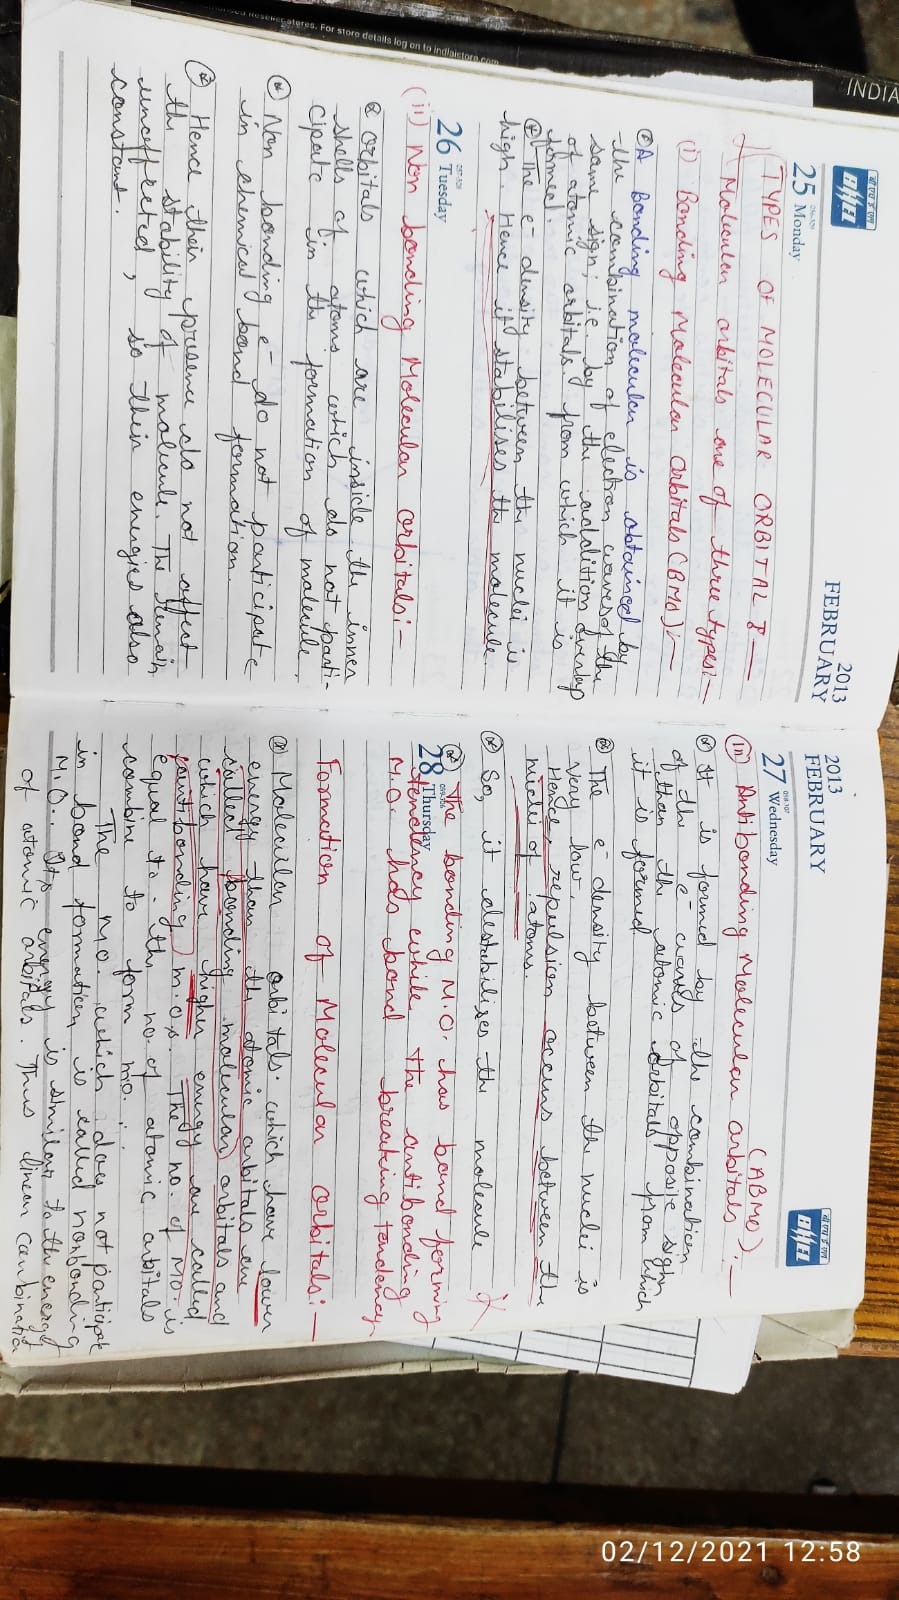 Reseller stores. For store details log on to indiaistore.com
INDIA
बी एच ई एल
BHEL
2013
FEBRUARY
25 Monday
TYPES OF MOLECULAR ORBITAL :—
Molecular orbitals are of three types:—
(i) Bonding Molecular Orbitals (BMO):—
A Bonding molecular is obtained by
the combination of electron waves of the
same sign; i.e. by the addition overlap
of atomic orbitals from which it is
formed.
The e⁻ density between the nuclei is
high. Hence it stabilises the molecule.
26 Tuesday
(ii) Non bonding Molecular orbitals:—
orbitals which are inside the inner
shells of atoms which do not parti-
cipate in the formation of molecule.
Non bonding e⁻ do not participate
in chemical bond formation.
Hence their presence do not affect
the stability of molecule. The remain
unaffected, so their energies also
constant.
2013
FEBRUARY
27 Wednesday
बी एच ई एल
BHEL
(ABMO):—
(iii) Antibonding Molecular orbitals
It is formed by the combination
of the e⁻ waves of opposite sign
of than the atomic orbitals from which
it is formed.
The e⁻ density between the nuclei is
very low.
Hence repulsion occurs between the
nuclei of atoms.
So, it destabilises the molecule
28 Thursday
The bonding M.O. has bond forming
tendency while the antibonding
M.O. has bond breaking tendency.
Formation of Molecular orbitals:—
Molecular orbitals which have lower
energy than the atomic orbitals are
called bonding molecular orbitals and
which have higher energy are called
antibonding m.o.s. The no. of MO. is
equal to the no. of atomic orbitals
combine to form mo.
The M.O. which does not participate
in bond formation is called nonbonding
M.O.. Its energy is similar to the energy
of atomic orbitals. Thus linear combination
02/12/2021 12:58